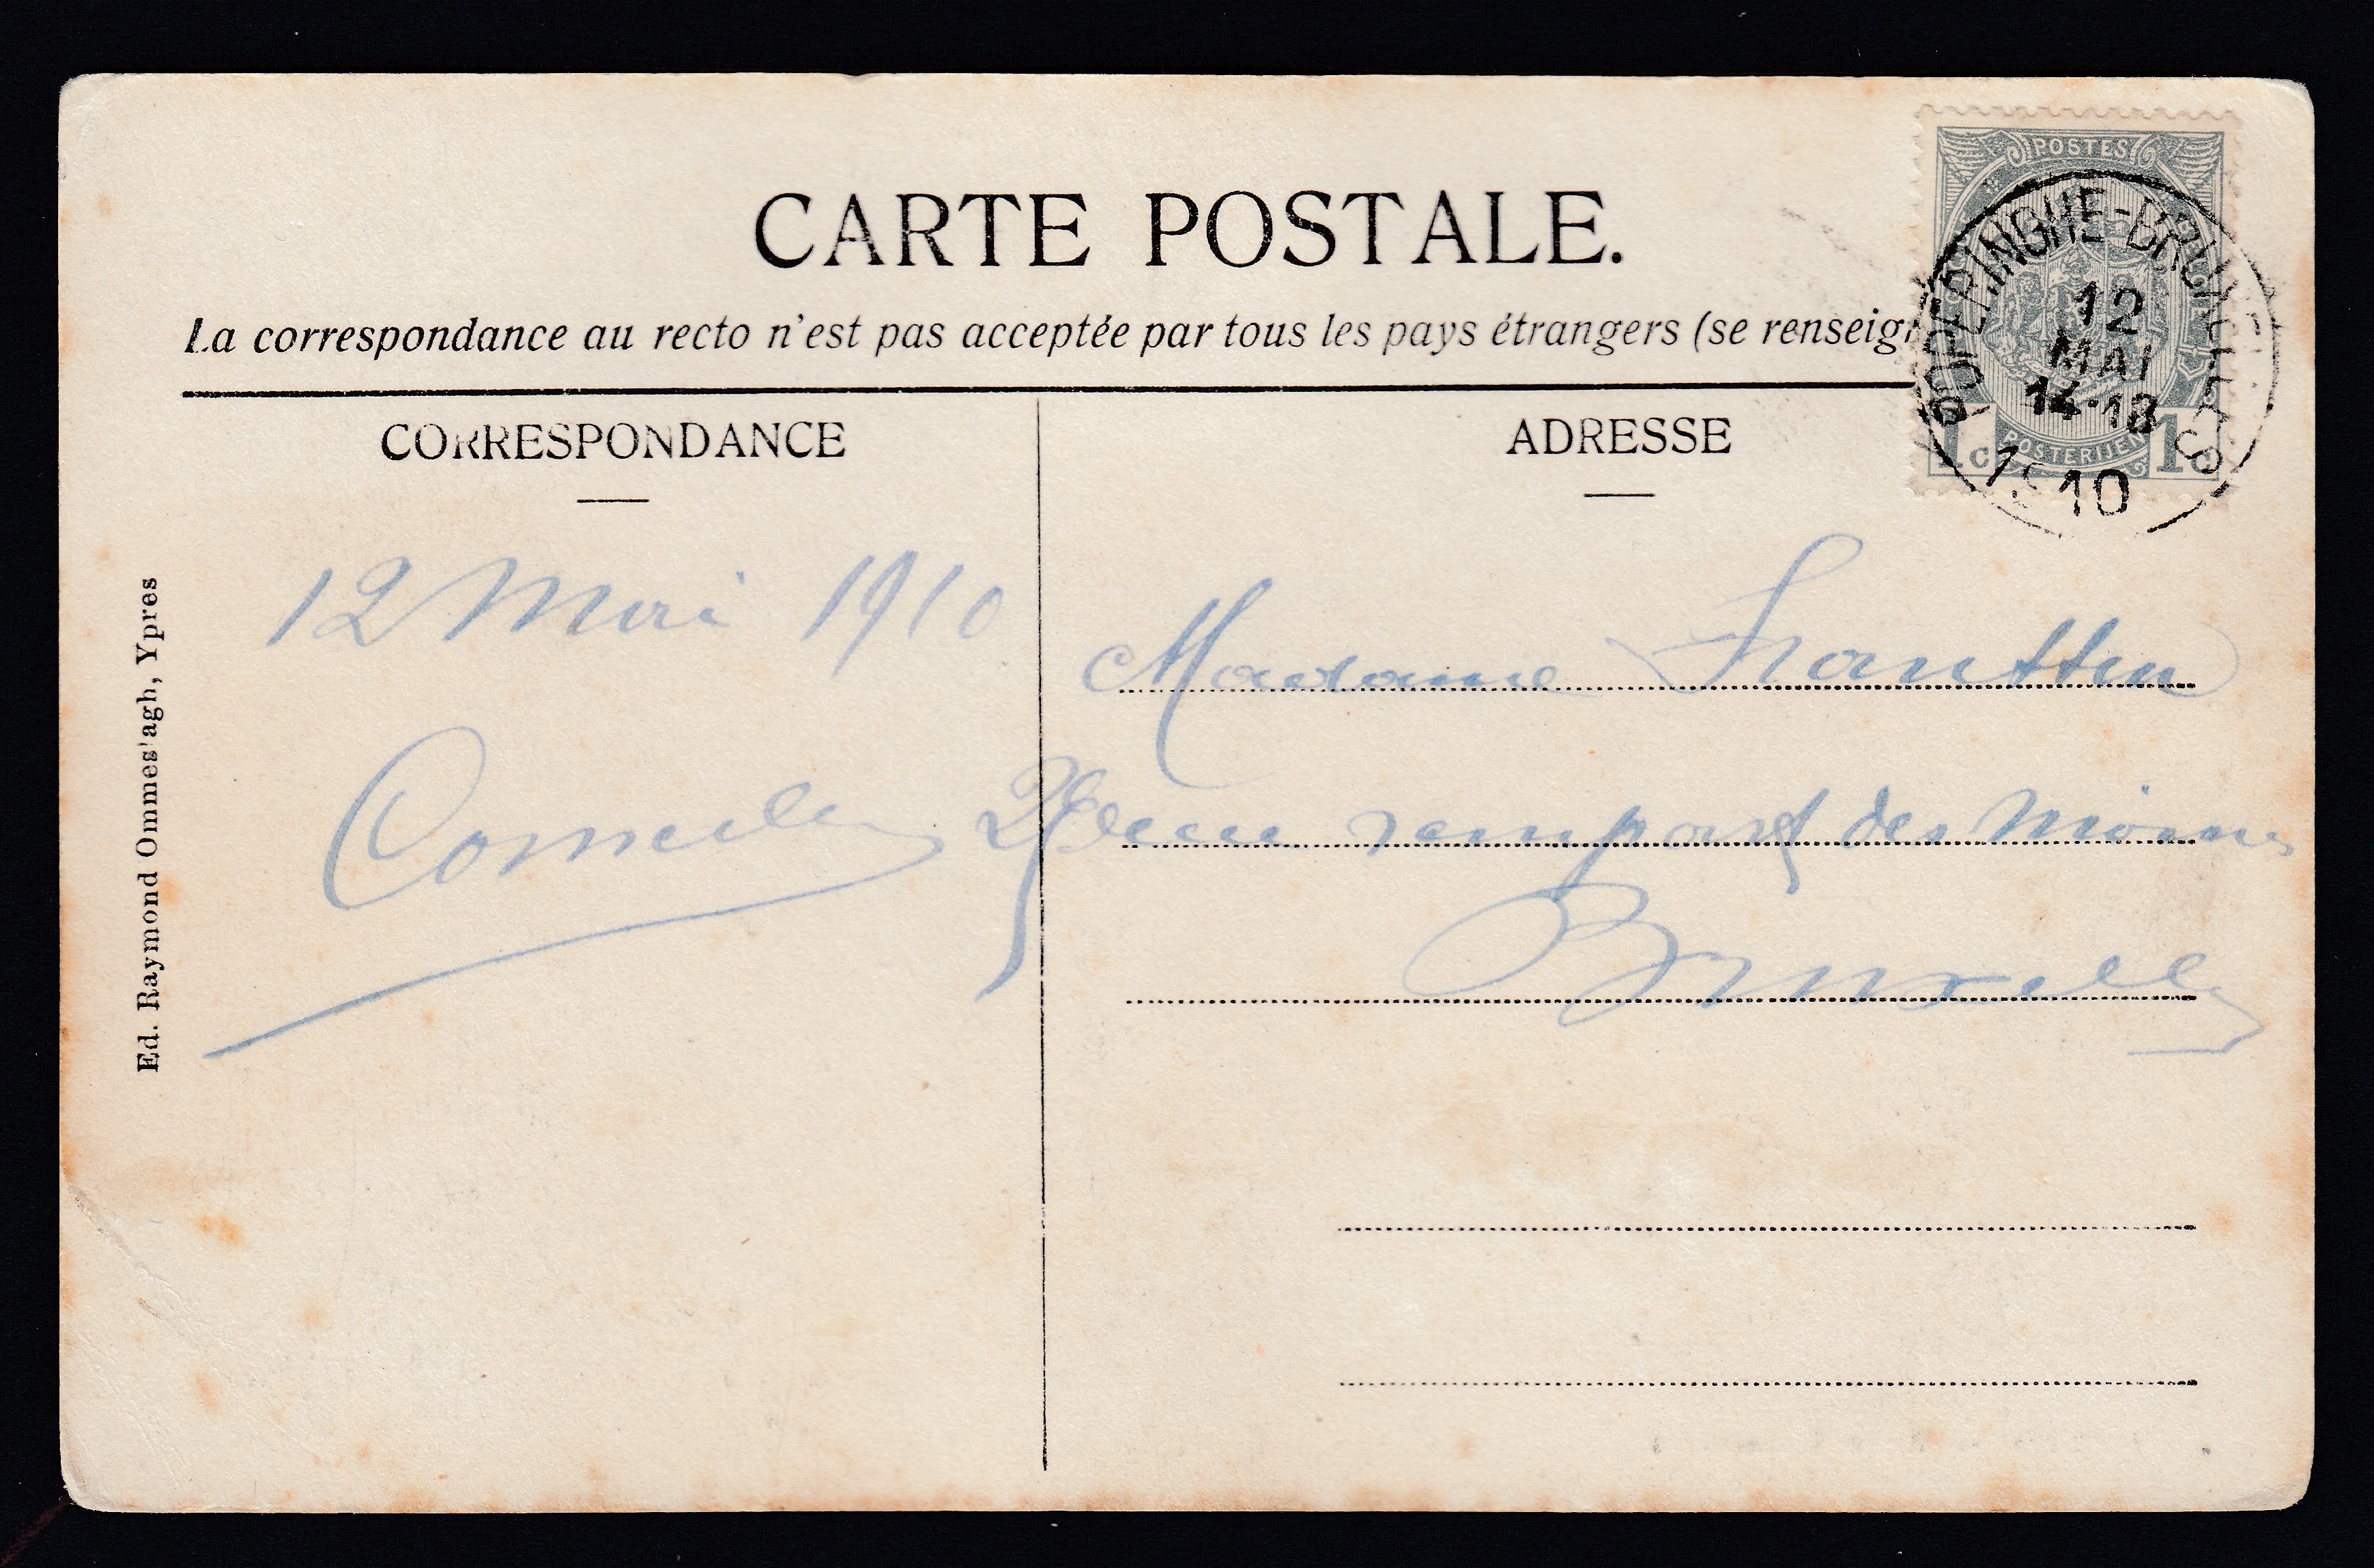 CARTE POSTALE.
La correspondance au recto n'est pas acceptée par tous les pays étrangers (se renseign
CORRESPONDANCE
ADRESSE
POSTES
POPERINGHE-BRUXELLES
12
MAI
14-18
1910
POSTERIJEN
1c 1c
12 Mai 1910
Madame
rempart des Moines
Bruxelles
Ed. Raymond Ommes'agh, Ypres